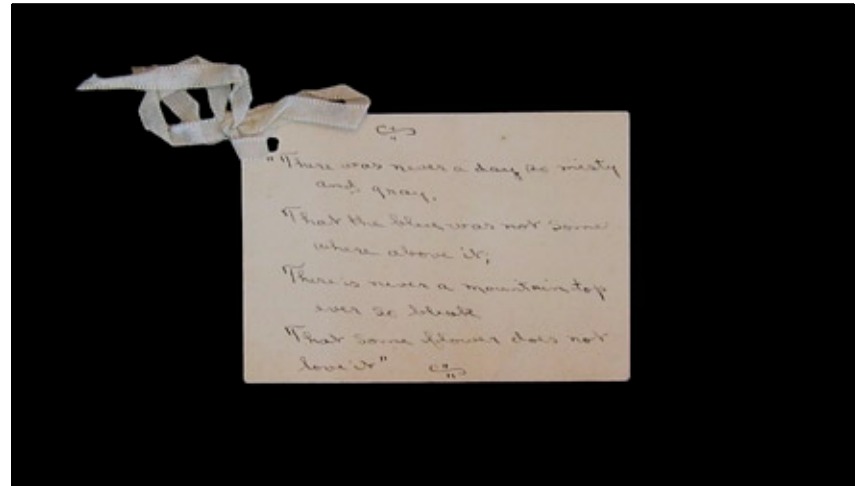 "There was never a day so misty
and gray,
That the blue was not some
where above it;
There is never a mountain top
ever so bleak
That some flower does not
love it"